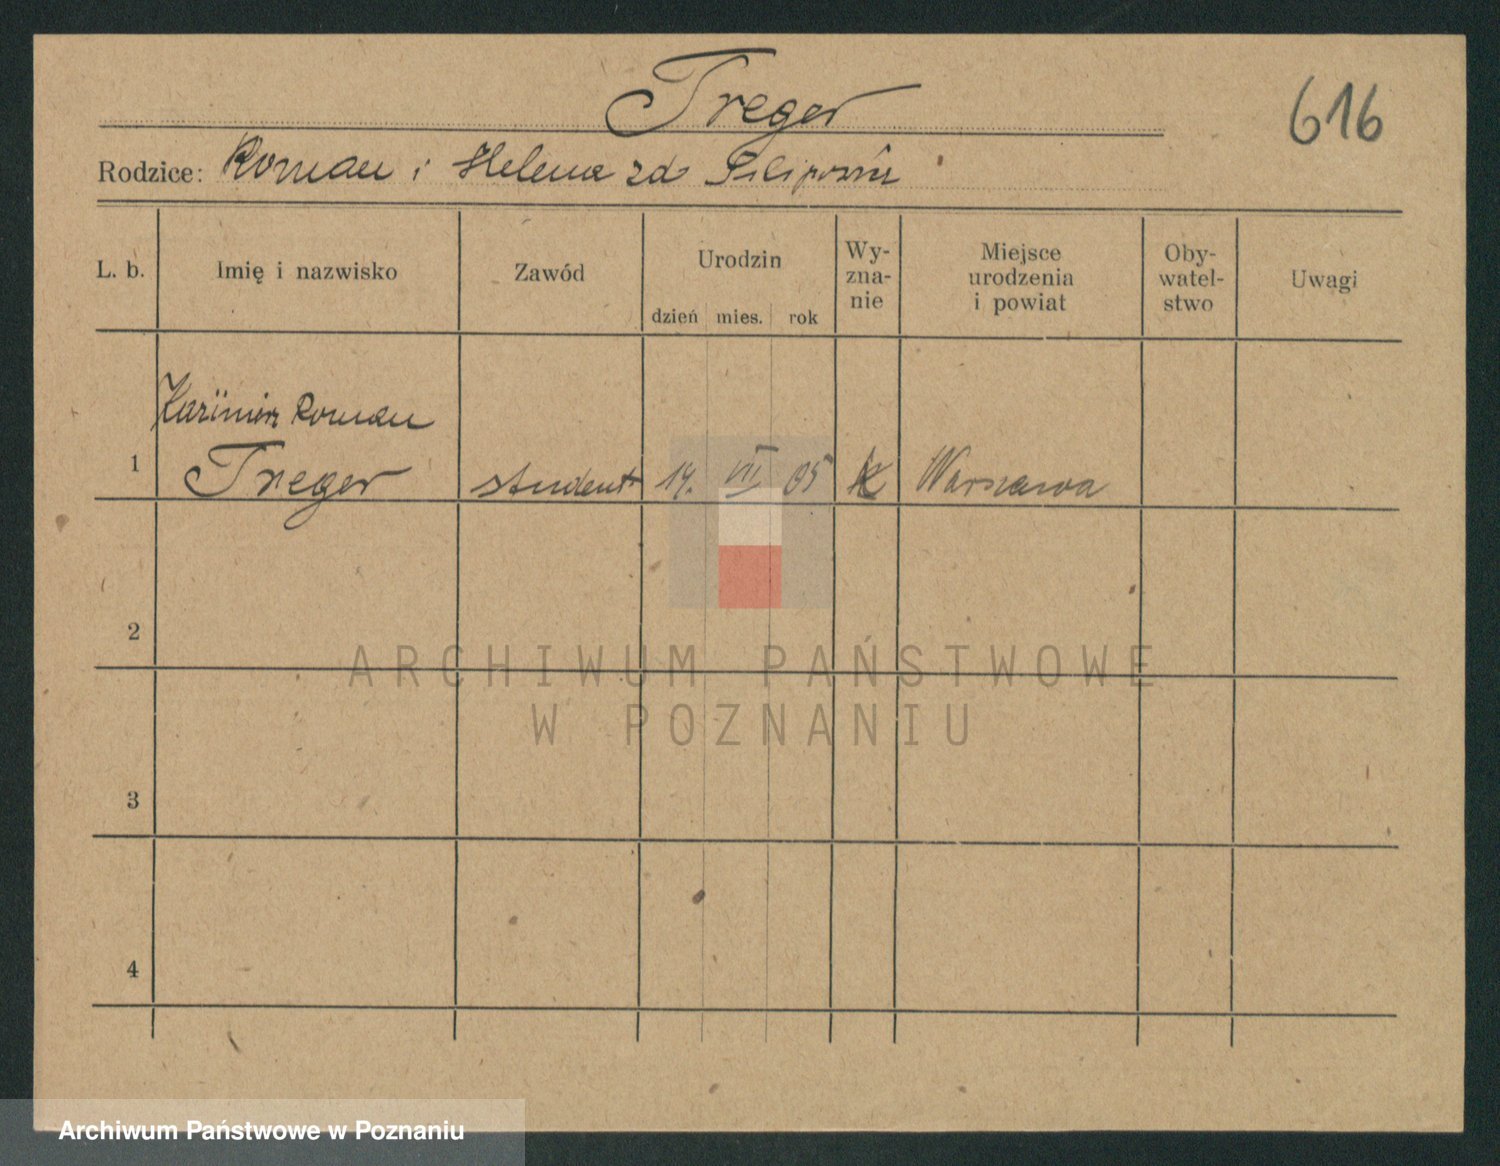 Treger
616
Rodzice: Roman i Helena zd
L. b. Imię i nazwisko Zawód Urodzin Wy- Miejsce Oby- Uwagi
zna- urodzenia watel-
nie i powiat stwo
dzień mies. rok
Kazimierz Roman
1 Treger student 14. VII 05 k Warszawa
2
3
4
ARCHIWUM PAŃSTWOWE
W POZNANIU
Archiwum Państwowe w Poznaniu